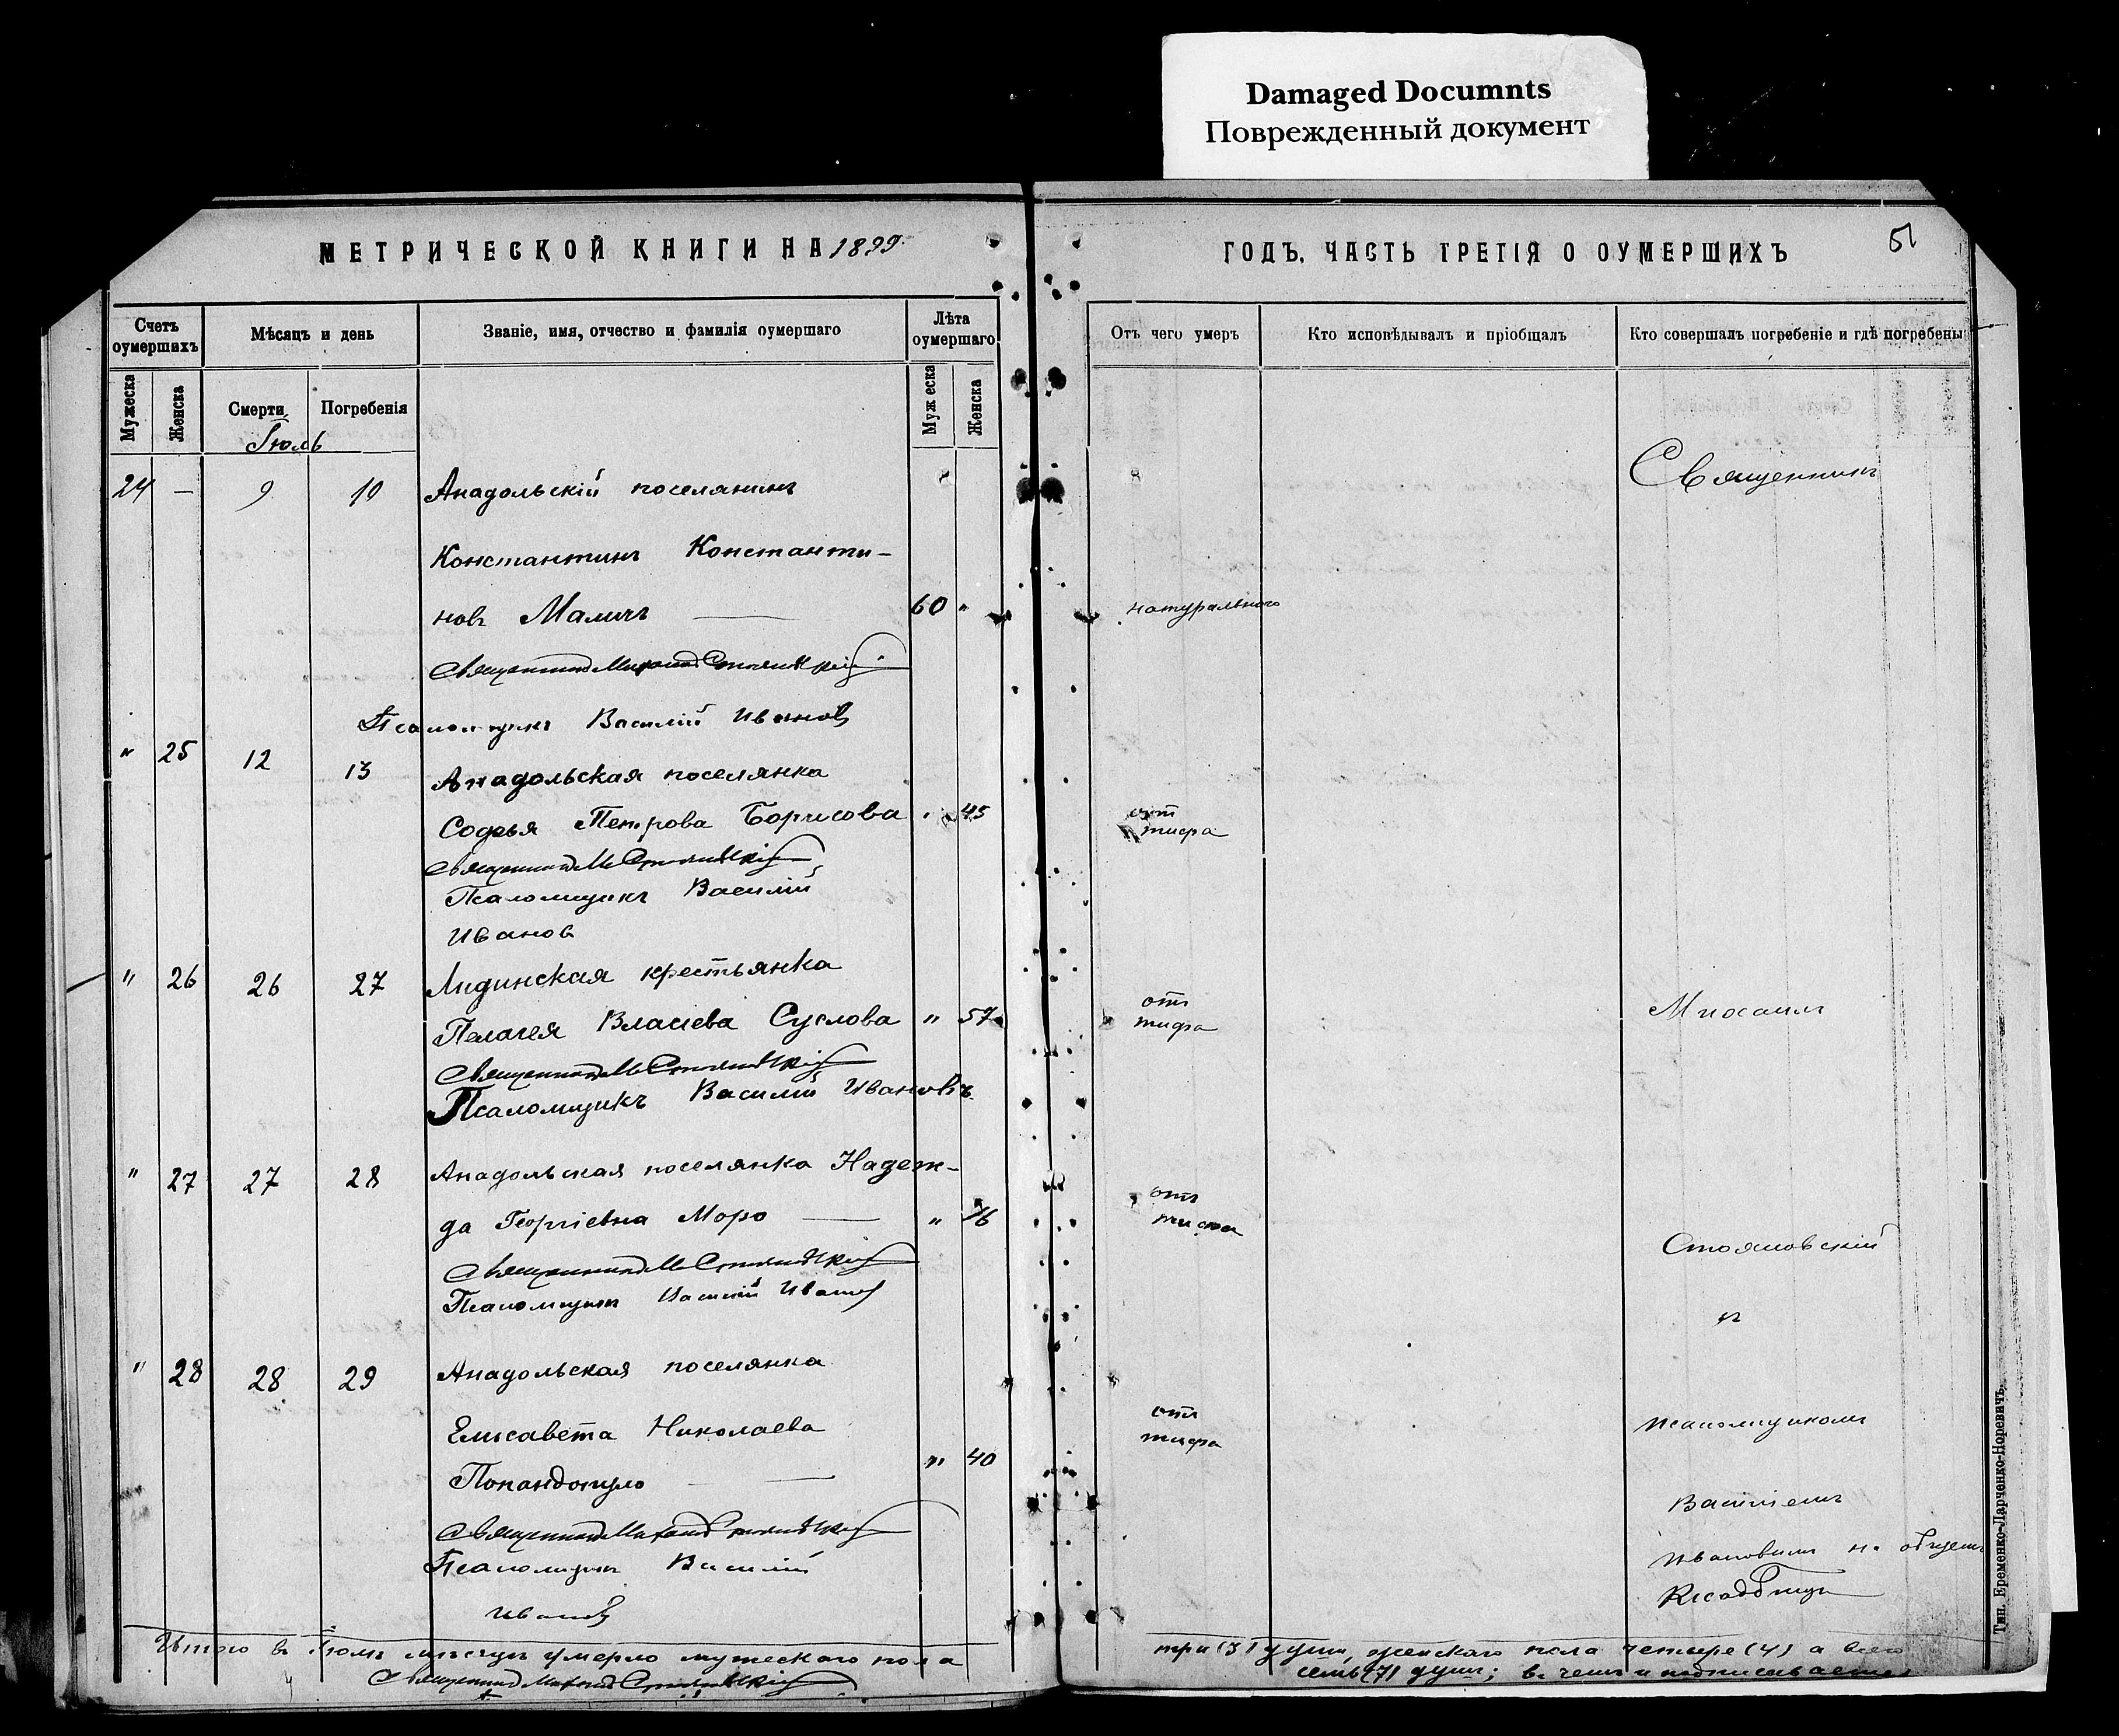 Damaged Documnts
Поврежденный документ
МЕТРИЧЕСКОЙ КНИГИ НА 1899
ГОДЪ, ЧАСТЬ ТРЕТІЯ О ОУМЕРШИХЪ
51
Счетъ оумершихъ
Мѣсяцъ и день
Званіе, имя, отчество и фамилія оумершаго
Лѣта оумершаго
Отъ чего умеръ
Кто исповѣдывалъ и пріобщалъ
Кто совершалъ погребеніе и гдѣ погребены
Мужеска
Женска
Смерти
Погребенія
Мужеска
Женска
Іюль
24 — 9 10 Анадольскій поселянинъ
Священникъ
Константинъ Константи-
новъ Маличъ 60 "
натуральнаго
Священникъ Михаилъ
Псаломщикъ Василій Ивановъ
" 25 12 13 Анадольская поселянка
Софья Петрова Борисова " 45
отъ
тифа
Священникъ М.
Псаломщикъ Василій
Иванов
" 26 26 27 Лидинская крестьянка
Пелагея Власіева Суслова " 57
отъ
тифа
Священникъ М.
Псаломщикъ Василій Ивановъ
" 27 27 28 Анадольская поселянка Надеж-
да Георгіевна Моро " 76
отъ
тифа
Стояновскій
Священникъ М.
Псаломщикъ Василій Иванов
съ
" 28 28 29 Анадольская поселянка
Елисавета Николаева
отъ
тифа
псаломщикомъ
Попандопуло " 40
Василіемъ
Священникъ Михаилъ
Ивановымъ на общемъ
Псаломщикъ Василій
кладбищѣ
Иванов
Итого въ Іюлѣ мѣсяцѣ умерло мужескаго пола
три (3) души, женскаго пола четыре (4) а всего
семь (7) душъ; въ чемъ и подписываемся
Священникъ Михаилъ
Тип. Еременко-Ларченко-Норевичъ.